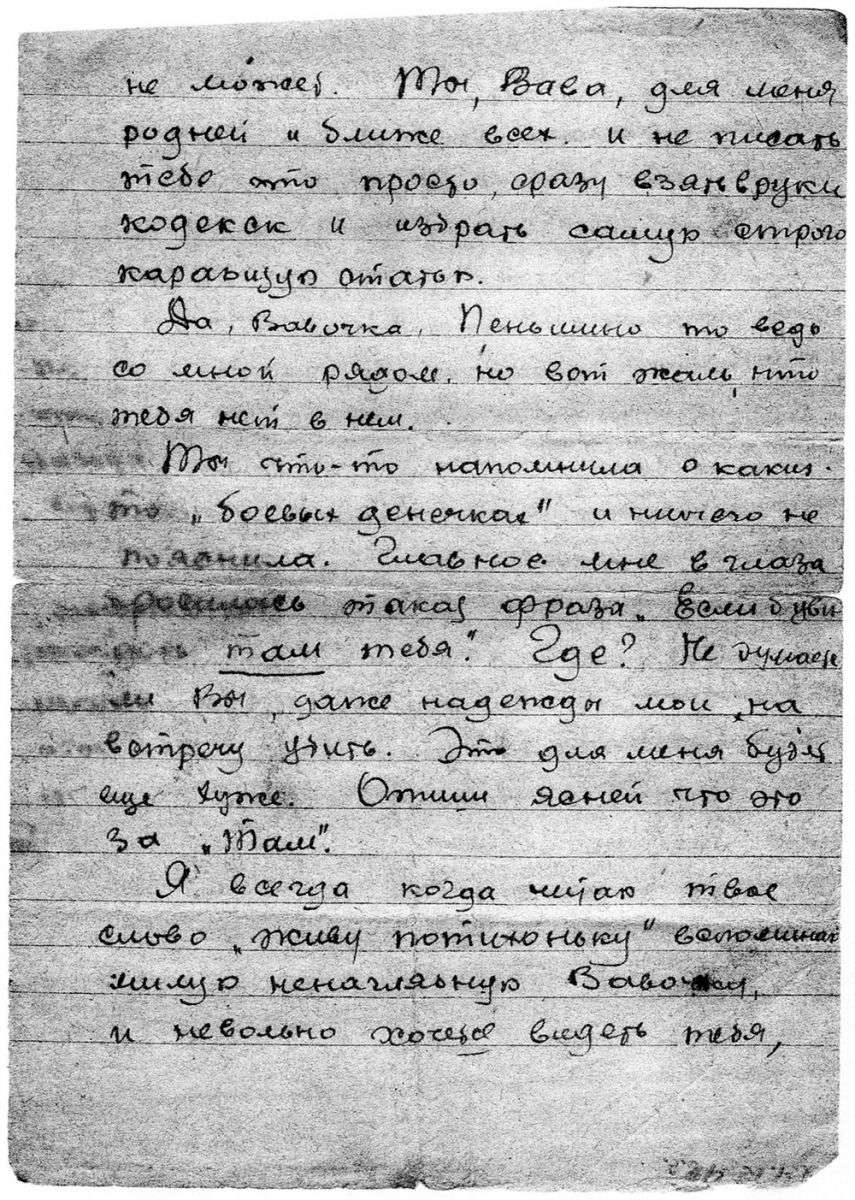 не может. Ты, Вава, для меня
родней и ближе всех. и не писать
тебе это просто, сразу взять вруки
кодекск и избрать самую строго
караьщую статью.
Да, Вавочка, Пеньшино то ведь
со мной рядом, но вот жаль, что
тебя нет в нем.
Ты что-то напомнила о каких-
то „боевых денечках" и ничего не
пояснила. Главное мне в глаза
бросилась такая фраза „Если б уви
там тебя". Где? Не думаете
ли Вы, даже надежды мои на
встречу убить. Это для меня будет
еще хуже. Опиши ясней что это
за „Там".
Я всегда когда читаю твое
слово „живу потихоньку" вспоминаю
милую ненаглядьную Вавочку,
и невольно хочется видеть тебя,